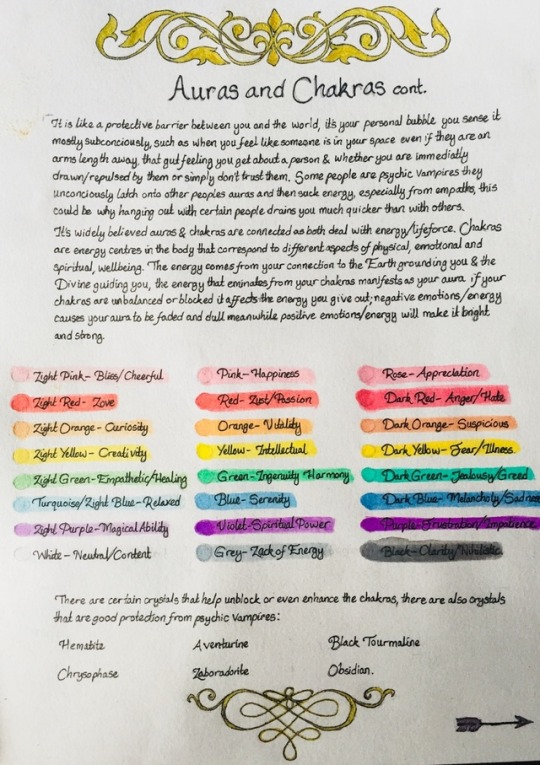 Auras and Chakras cont.
It is like a protective barrier between you and the world, it's your personal bubble you sense it
mostly subconciously, such as when you feel like someone is in your space even if they are an
arms length away, that gut feeling you get about a person & whether you are immediatly
drawn/repulsed by them or simply don't trust them. Some people are psychic Vampires they
unconciously latch onto other peoples auras and then suck energy, especially from empaths, this
could be why hanging out with certain people drains you much quicker than with others.
It's widely believed auras & chakras are connected as both deal with energy/lifeforce. Chakras
are energy centres in the body that correspond to different aspects of physical, emotional and
spiritual, wellbeing. The energy comes from your connection to the Earth grounding you & the
Divine guiding you, the energy that eminates from your chakras manifests as your aura if your
chakras are unbalanced or blocked it affects the energy you give out; negative emotions/energy
causes your aura to be faded and dull meanwhile positive emotions/energy will make it bright
and strong.
Light Pink - Bliss/Cheerful Pink - Happiness Rose - Appreciation
Light Red - Love Red - Lust/Passion Dark Red - Anger/Hate
Light Orange - Curiosity Orange - Vitality Dark Orange - Suspicious
Light Yellow - Creativity Yellow - Intellectual Dark Yellow - Fear/Illness.
Light Green - Empathetic/Healing Green - Ingenuity Harmony Dark Green - Jealousy/Greed
Turquoise/Light Blue - Relaxed Blue - Serenity Dark Blue - Melancholy/Sadness
Light Purple - Magical Ability Violet - Spiritual Power Purple - Frustration/Impatience
White - Neutral/Content Grey - Lack of Energy Black - Clarity/Nihilistic
There are certain crystals that help unblock or even enhance the chakras, there are also crystals
that are good protection from psychic Vampires:
Hematite Aventurine Black Tourmaline
Chrysophase Laboradorite Obsidian.